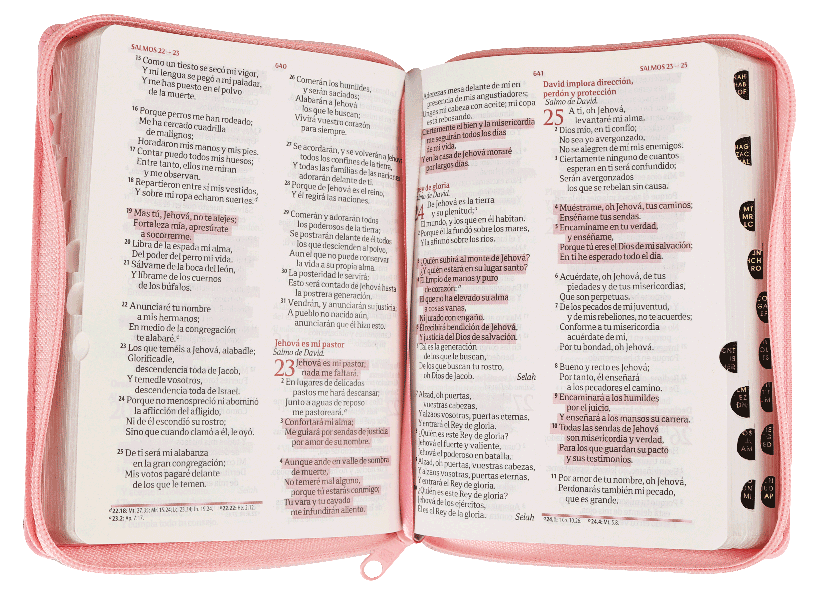 SALMOS 22 – 23
640
15 Como un tiesto se secó mi vigor,
Y mi lengua se pegó a mi paladar,
Y me has puesto en el polvo
de la muerte.
16 Porque perros me han rodeado;
Me ha cercado cuadrilla
de malignos;
Horadaron mis manos y mis pies.
17 Contar puedo todos mis huesos;
Entre tanto, ellos me miran
y me observan.
18 Repartieron entre sí mis vestidos,
Y sobre mi ropa echaron suertes.
19 Mas tú, Jehová, no te alejes;
Fortaleza mía, apresúrate
a socorrerme.
20 Libra de la espada mi alma,
Del poder del perro mi vida.
21 Sálvame de la boca del león,
Y líbrame de los cuernos
de los búfalos.
22 Anunciaré tu nombre
a mis hermanos;
En medio de la congregación
te alabaré.
23 Los que teméis a Jehová, alabadle;
Glorificadle,
descendencia toda de Jacob,
Y temedle vosotros,
descendencia toda de Israel.
24 Porque no menospreció ni abominó
la aflicción del afligido,
Ni de él escondió su rostro;
Sino que cuando clamó a él, le oyó.
25 De ti será mi alabanza
en la gran congregación;
Mis votos pagaré delante
de los que le temen.
26 Comerán los humildes,
y serán saciados;
Alabarán a Jehová
los que le buscan;
Vivirá vuestro corazón
para siempre.
27 Se acordarán, y se volverán a Jehová
todos los confines de la tierra,
Y todas las familias de las naciones
adorarán delante de ti.
28 Porque de Jehová es el reino,
Y él regirá las naciones.
29 Comerán y adorarán todos
los poderosos de la tierra;
Se postrarán delante de él todos
los que descienden al polvo,
Aun el que no puede conservar
la vida a su propia alma.
30 La posteridad le servirá;
Esto será contado de Jehová hasta
la postrera generación.
31 Vendrán, y anunciarán su justicia;
A pueblo no nacido aún,
anunciarán que él hizo esto.
Jehová es mi pastor
Salmo de David.
23 Jehová es mi pastor;
nada me faltará.
2 En lugares de delicados
pastos me hará descansar;
Junto a aguas de reposo
me pastoreará.
3 Confortará mi alma;
Me guiará por sendas de justicia
por amor de su nombre.
4 Aunque ande en valle de sombra
de muerte,
No temeré mal alguno,
porque tú estarás conmigo;
Tu vara y tu cayado
me infundirán aliento.
641
SALMOS 23 – 25
Aderezas mesa delante de mí en
presencia de mis angustiadores;
Unges mi cabeza con aceite; mi copa
está rebosando.
Ciertamente el bien y la misericordia
me seguirán todos los días
de mi vida,
Y en la casa de Jehová moraré
por largos días.
rey de gloria
Salmo de David.
De Jehová es la tierra
y su plenitud;
El mundo, y los que en él habitan.
2 Porque él la fundó sobre los mares,
Y la afirmó sobre los ríos.
3 ¿Quién subirá al monte de Jehová?
¿Y quién estará en su lugar santo?
4 El limpio de manos y puro
de corazón;
El que no ha elevado su alma
a cosas vanas,
Ni jurado con engaño.
5 Él recibirá bendición de Jehová,
Y justicia del Dios de salvación.
Tal es la generación
de los que le buscan,
De los que buscan tu rostro,
oh Dios de Jacob. Selah
Alzad, oh puertas,
vuestras cabezas,
Y alzaos vosotras, puertas eternas,
Y entrará el Rey de gloria.
¿Quién es este Rey de gloria?
Jehová el fuerte y valiente,
Jehová el poderoso en batalla.
Alzad, oh puertas, vuestras cabezas,
Y alzaos vosotras, puertas eternas,
Y entrará el Rey de gloria.
¿Quién es este Rey de gloria?
Jehová de los ejércitos,
Él es el Rey de la gloria. Selah
David implora dirección,
perdón y protección
Salmo de David.
25 A ti, oh Jehová,
levantaré mi alma.
2 Dios mío, en ti confío;
No sea yo avergonzado,
No se alegren de mí mis enemigos.
3 Ciertamente ninguno de cuantos
esperan en ti será confundido;
Serán avergonzados
los que se rebelan sin causa.
4 Muéstrame, oh Jehová, tus caminos;
Enséñame tus sendas.
5 Encamíname en tu verdad,
y enséñame,
Porque tú eres el Dios de mi salvación;
En ti he esperado todo el día.
6 Acuérdate, oh Jehová, de tus
piedades y de tus misericordias,
Que son perpetuas.
7 De los pecados de mi juventud,
y de mis rebeliones, no te acuerdes;
Conforme a tu misericordia
acuérdate de mí,
Por tu bondad, oh Jehová.
8 Bueno y recto es Jehová;
Por tanto, él enseñará
a los pecadores el camino.
9 Encaminará a los humildes
por el juicio,
Y enseñará a los mansos su carrera.
10 Todas las sendas de Jehová
son misericordia y verdad,
Para los que guardan su pacto
y sus testimonios.
11 Por amor de tu nombre, oh Jehová,
Perdonarás también mi pecado,
que es grande.